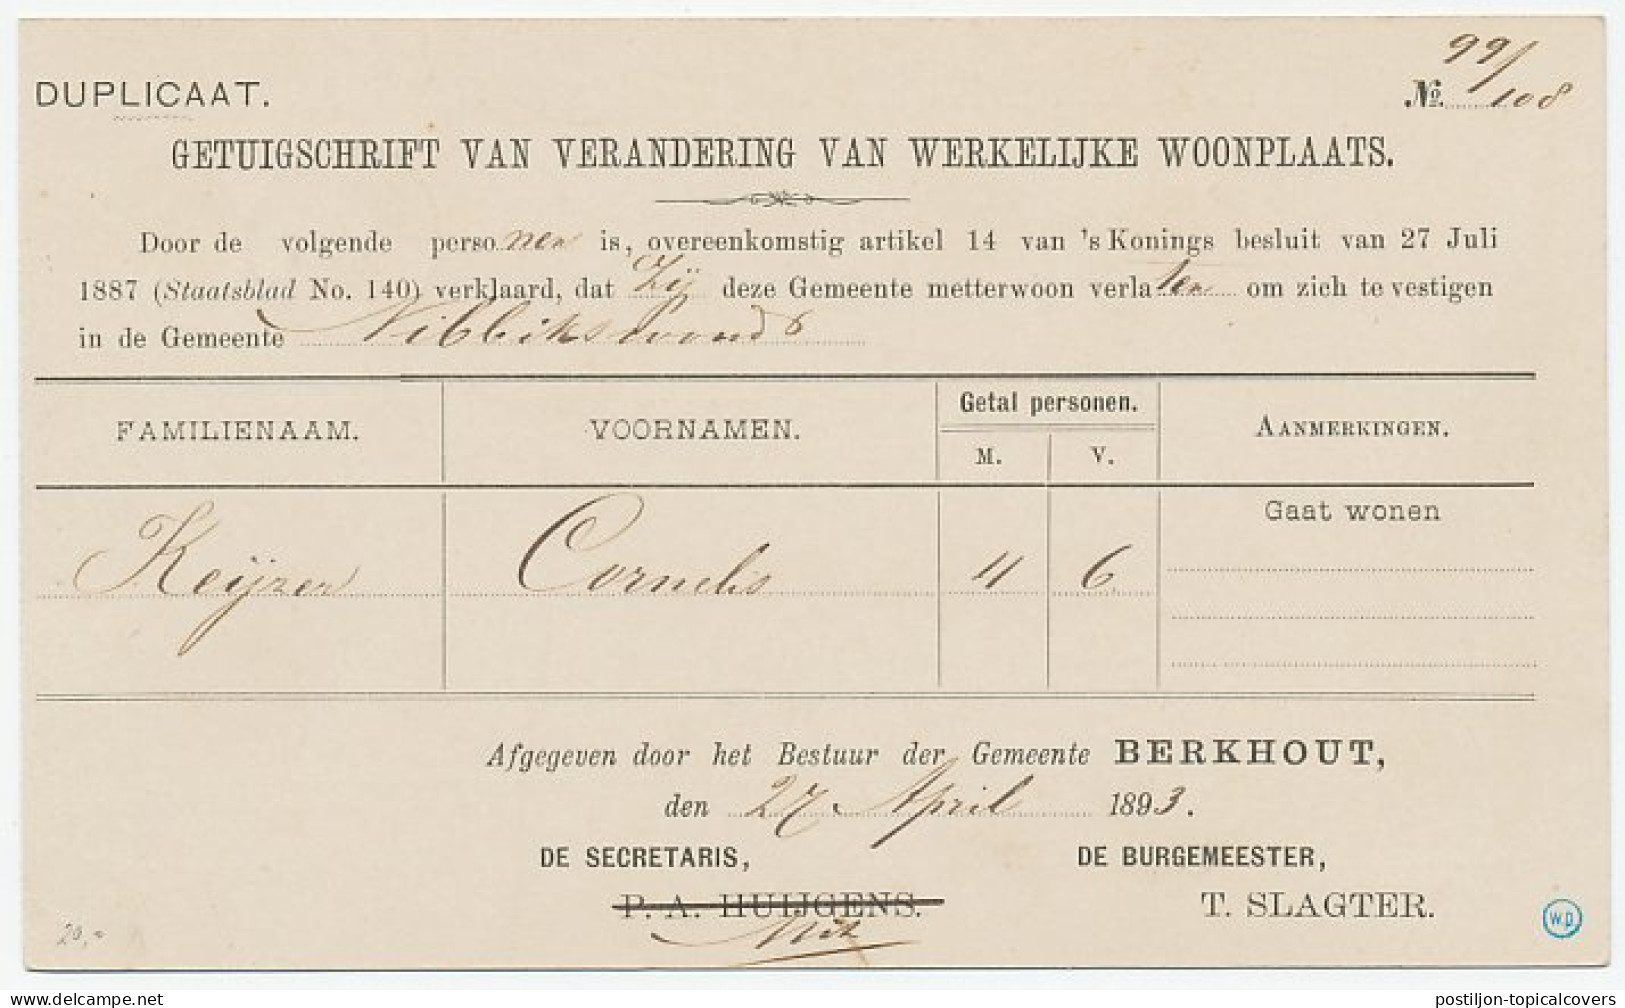 99/108
DUPLICAAT.
№
GETUIGSCHRIFT VAN VERANDERING VAN WERKELIJKE WOONPLAATS.
Door de volgende personen is, overeenkomstig artikel 14 van 's Konings besluit van 27 Juli
1887 (Staatsblad No. 140) verklaard, dat Zij deze Gemeente metterwoon verlaten om zich te vestigen
in de Gemeente Nibbikswoud
FAMILIENAAM. VOORNAMEN. Getal personen. AANMERKINGEN.
M. V.
Gaat wonen
Keijzer Cornelis 4 6
Afgegeven door het Bestuur der Gemeente BERKHOUT,
den 27 April 1893.
DE SECRETARIS, DE BURGEMEESTER,
P. A. HUIJGENS. T. SLAGTER.
W.P
20,-
delcampe.net
postiljon-topicalcovers